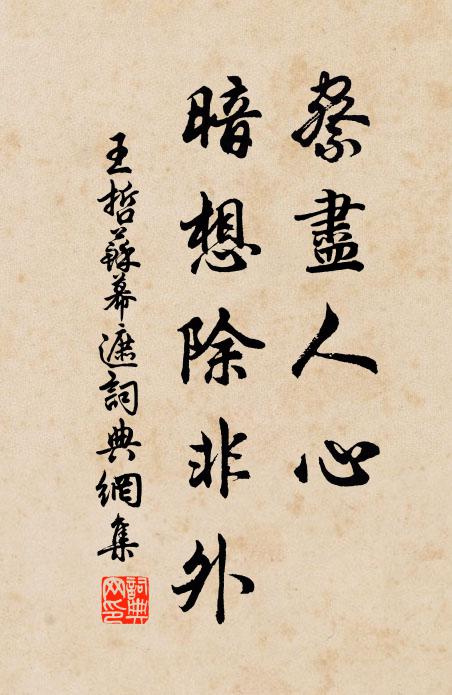 祭盡人心
暗想除非外
王哲蘇幕遮詞典網集
詞典
网印